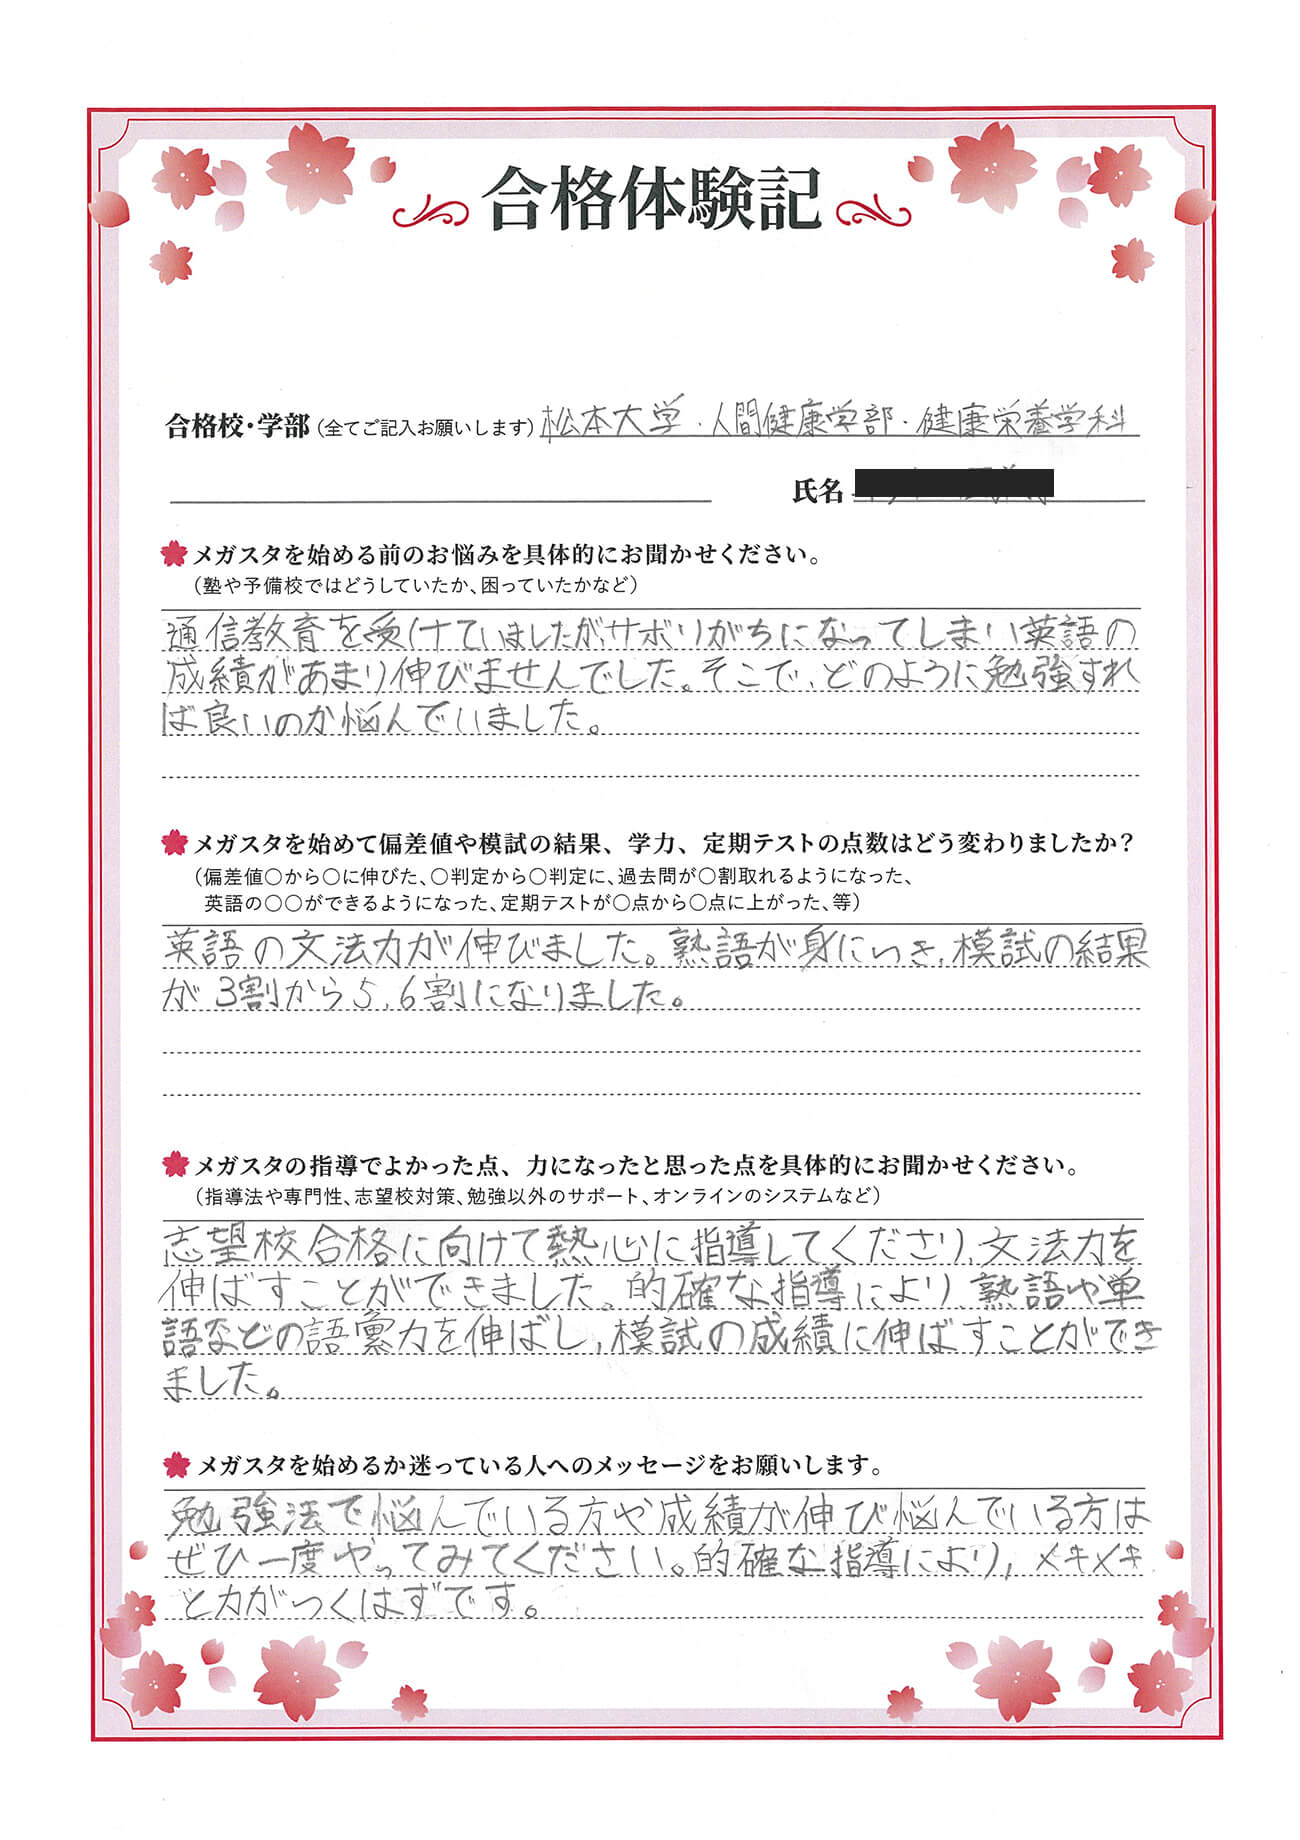 合格体験記
合格校・学部(全てご記入お願いします) 松本大学・人間健康学部・健康栄養学科
氏名
メガスタを始める前のお悩みを具体的にお聞かせください。
(塾や予備校ではどうしていたか、困っていたかなど)
通信教育を受けていましたがサボりがちになってしまい英語の
成績があまり伸びませんでした。そこで、どのように勉強すれ
ば良いのか悩んでいました。
メガスタを始めて偏差値や模試の結果、学力、定期テストの点数はどう変わりましたか?
(偏差値○から○に伸びた、○判定から○判定に、過去問が○割取れるようになった、
英語の○○ができるようになった、定期テストが○点から○点に上がった、等)
英語の文法力が伸びました。熟語が身につき、模試の結果
が3割から5,6割になりました。
メガスタの指導でよかった点、力になったと思った点を具体的にお聞かせください。
(指導法や専門性、志望校対策、勉強以外のサポート、オンラインのシステムなど)
志望校合格に向けて熱心に指導してくださり、文法力を
伸ばすことができました。的確な指導により、熟語や単
語などの語彙力を伸ばし、模試の成績に伸ばすことができ
ました。
メガスタを始めるか迷っている人へのメッセージをお願いします。
勉強法で悩んでいる方や成績が伸び悩んでいる方は
ぜひ一度やってみてください。的確な指導により、メキメキ
と力がつくはずです。